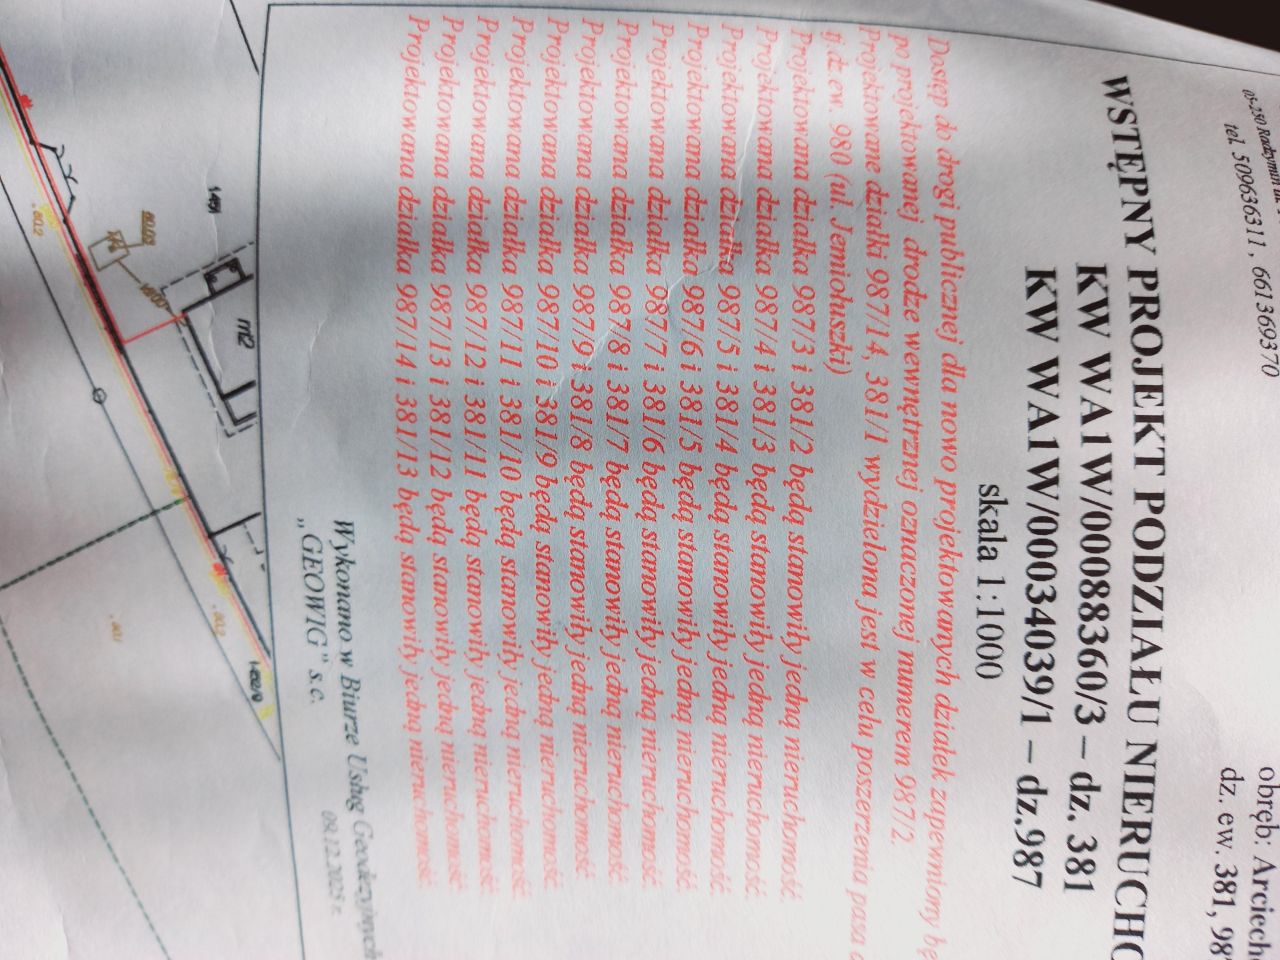 05-250 Radzymin
tel. 509636311, 661369370
obręb: Arciech
dz. ew. 381, 98
WSTĘPNY PROJEKT PODZIAŁU NIERUCHO
KW WA1W/00088360/3 – dz. 381
KW WA1W/00034039/1 – dz.987
skala 1:1000
Dostęp do drogi publicznej dla nowo projektowanych działek zapewniony bę
po projektowanej drodze wewnętrznej oznaczonej numerem 987/2.
Projektowane działki 987/14, 381/1 wydzielona jest w celu poszerzenia pasa d
tj. dz ew. 980 (ul. Jemiołuszki)
Projektowana działka 987/3 i 381/2 będą stanowiły jedną nieruchomość.
Projektowana działka 987/4 i 381/3 będą stanowiły jedną nieruchomość.
Projektowana działka 987/5 i 381/4 będą stanowiły jedną nieruchomość.
Projektowana działka 987/6 i 381/5 będą stanowiły jedną nieruchomość.
Projektowana działka 987/7 i 381/6 będą stanowiły jedną nieruchomość.
Projektowana działka 987/8 i 381/7 będą stanowiły jedną nieruchomość.
Projektowana działka 987/9 i 381/8 będą stanowiły jedną nieruchomość.
Projektowana działka 987/10 i 381/9 będą stanowiły jedną nieruchomość.
Projektowana działka 987/11 i 381/10 będą stanowiły jedną nieruchomość.
Projektowana działka 987/12 i 381/11 będą stanowiły jedną nieruchomość.
Projektowana działka 987/13 i 381/12 będą stanowiły jedną nieruchomość.
Projektowana działka 987/14 i 381/13 będą stanowiły jedną nieruchomość.
Wykonano w Biurze Usług Geodezyjnych
„GEOWIG" s.c.
09.12.2025 r.
m2